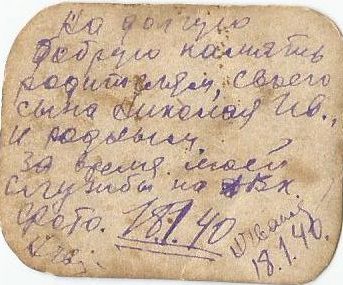 На долгую
добрую память
родителям, своего
сына Николая Ив.,
и родным
За время моей
службы на
Фото. 18.1.40
18.1.40.